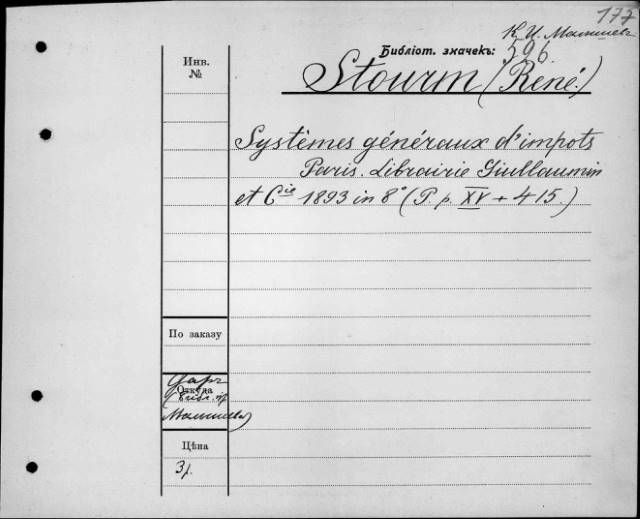 177
К. И. Малышев
Библіот. значекъ:
596.
Инв.
№
Stourm (René.)
Systêmes généraux d'impots
Paris. Librairie Guillaumin
et Cie 1893 in 8° (P. p. XV + 415.)
По заказу
Откуда
Малышева)
Цѣна
3р.